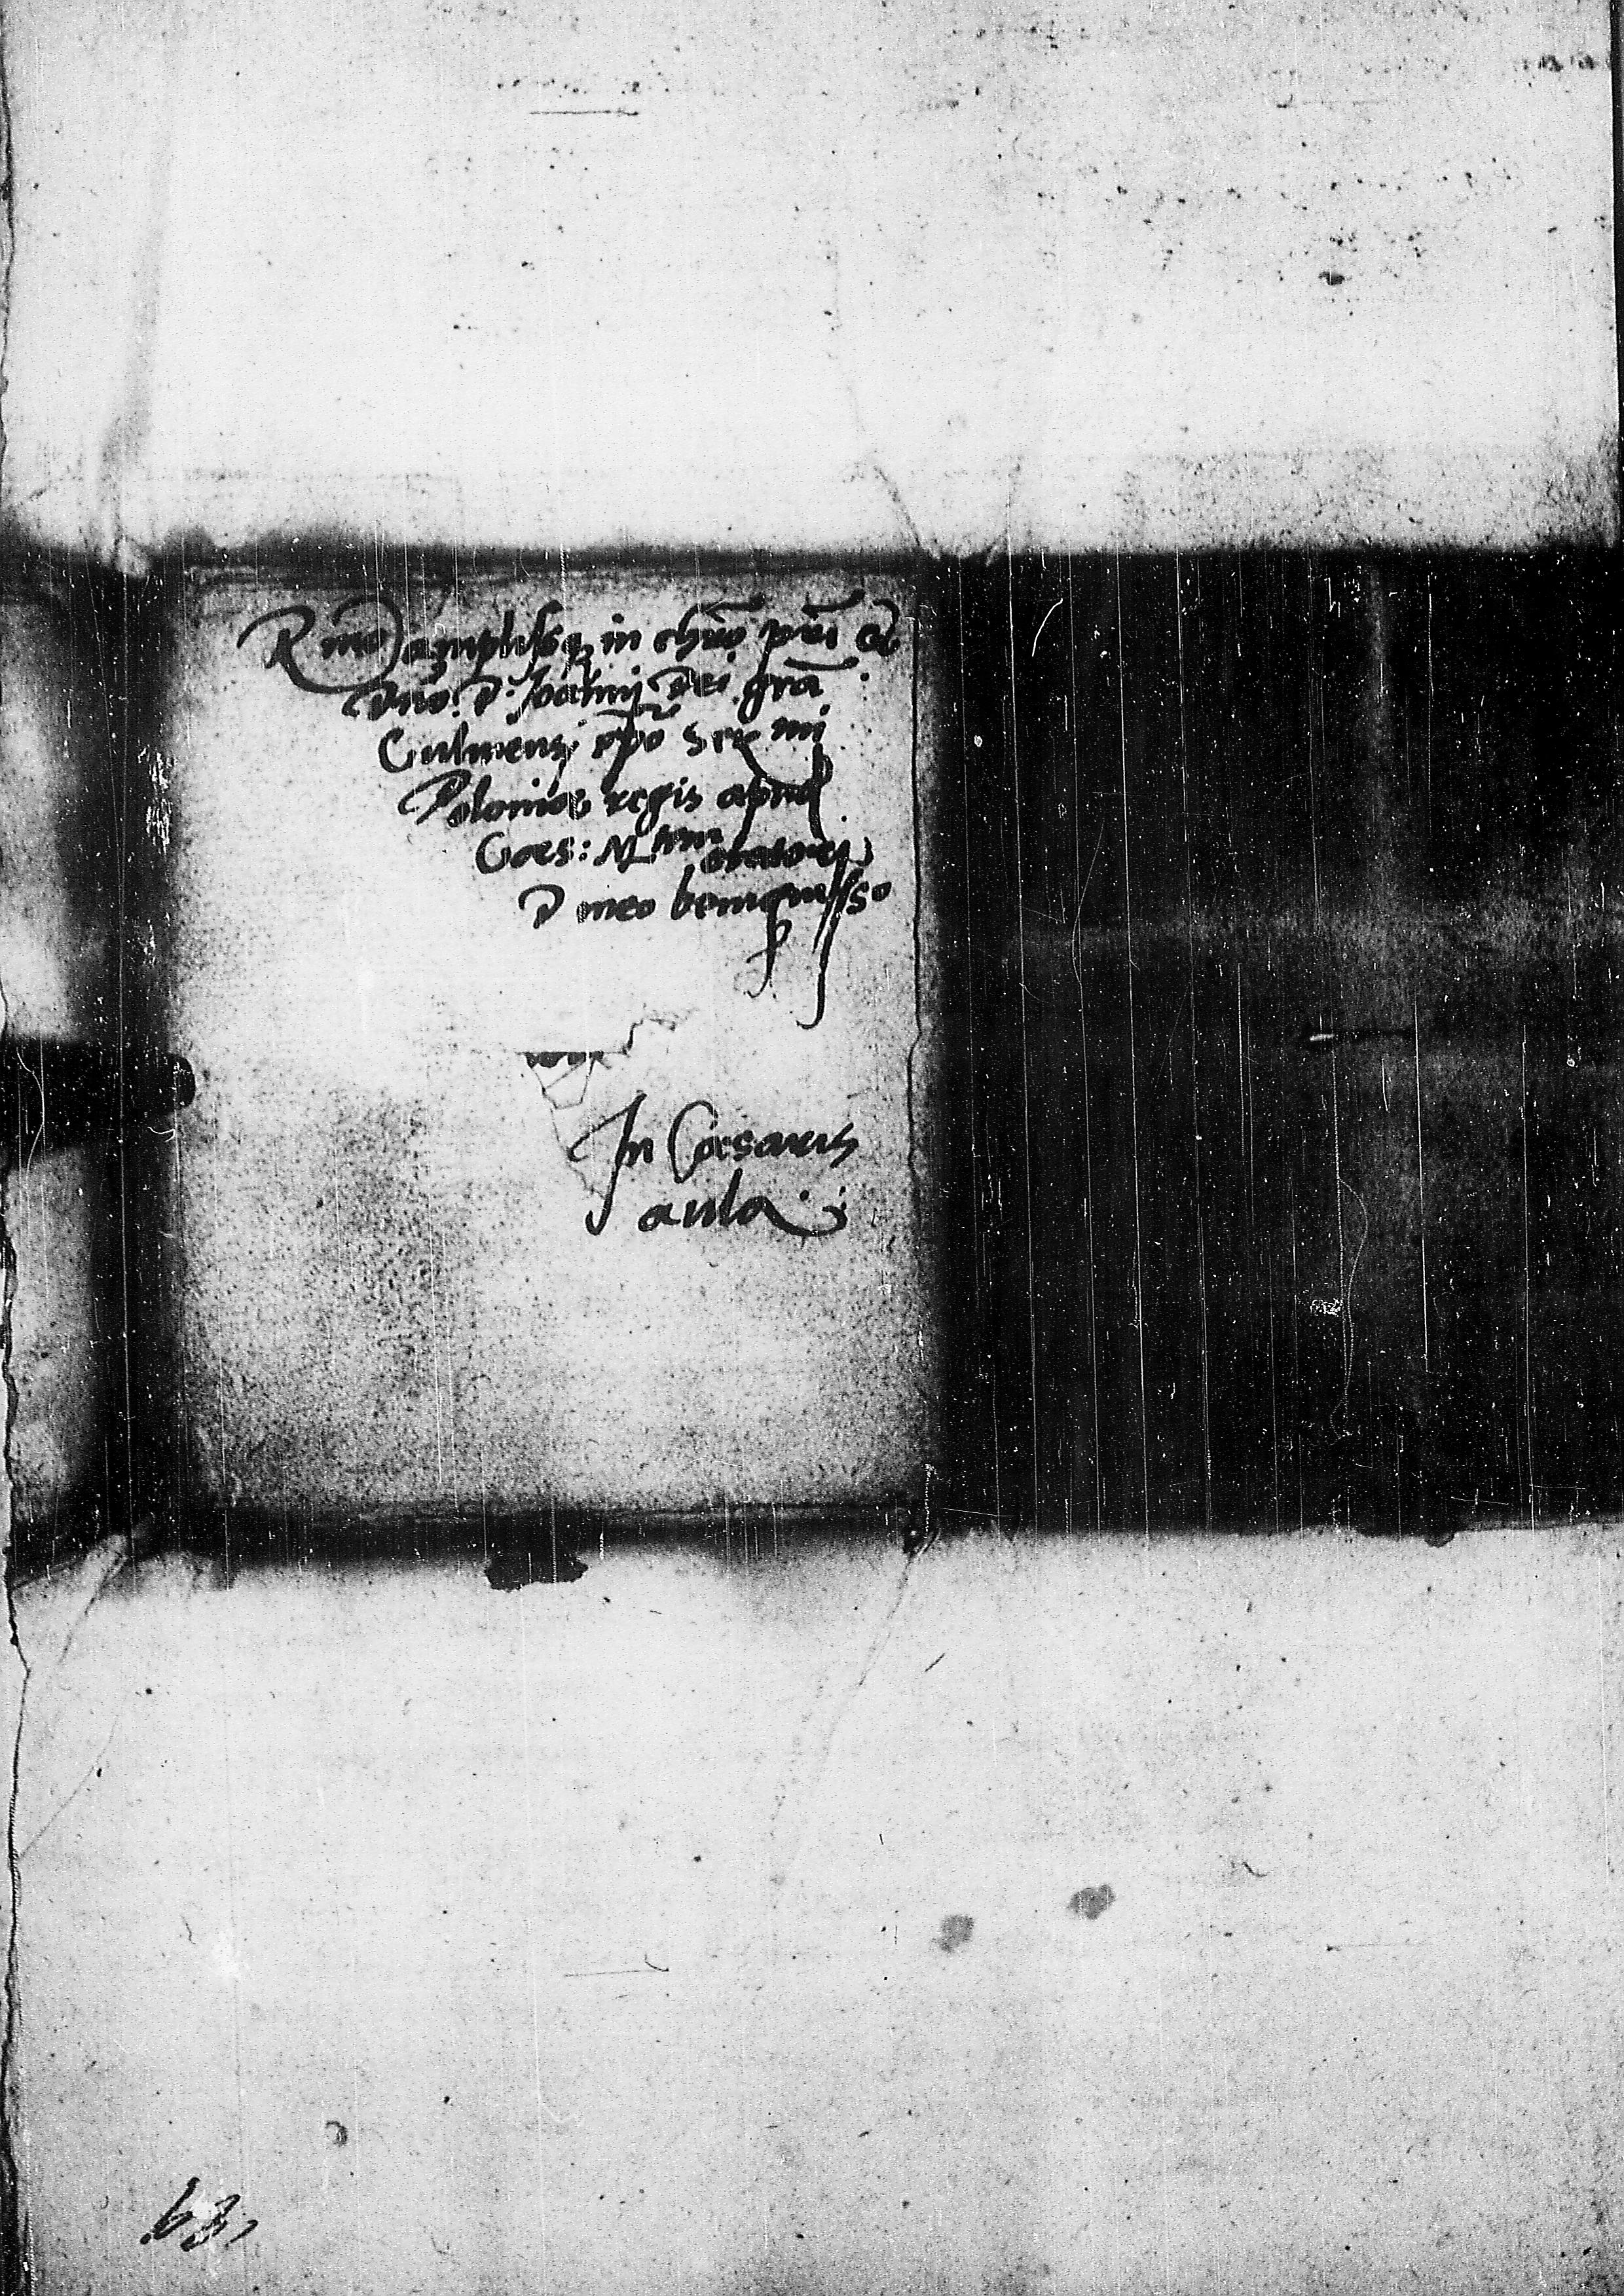 Rmo amplissoq; in chro pri et
dno d: Joanni dei gra
Culmensi epo sermi
Poloniae regis apud
Caes: Mtem oratori
d meo benignisso
In Caesaris
aula
63